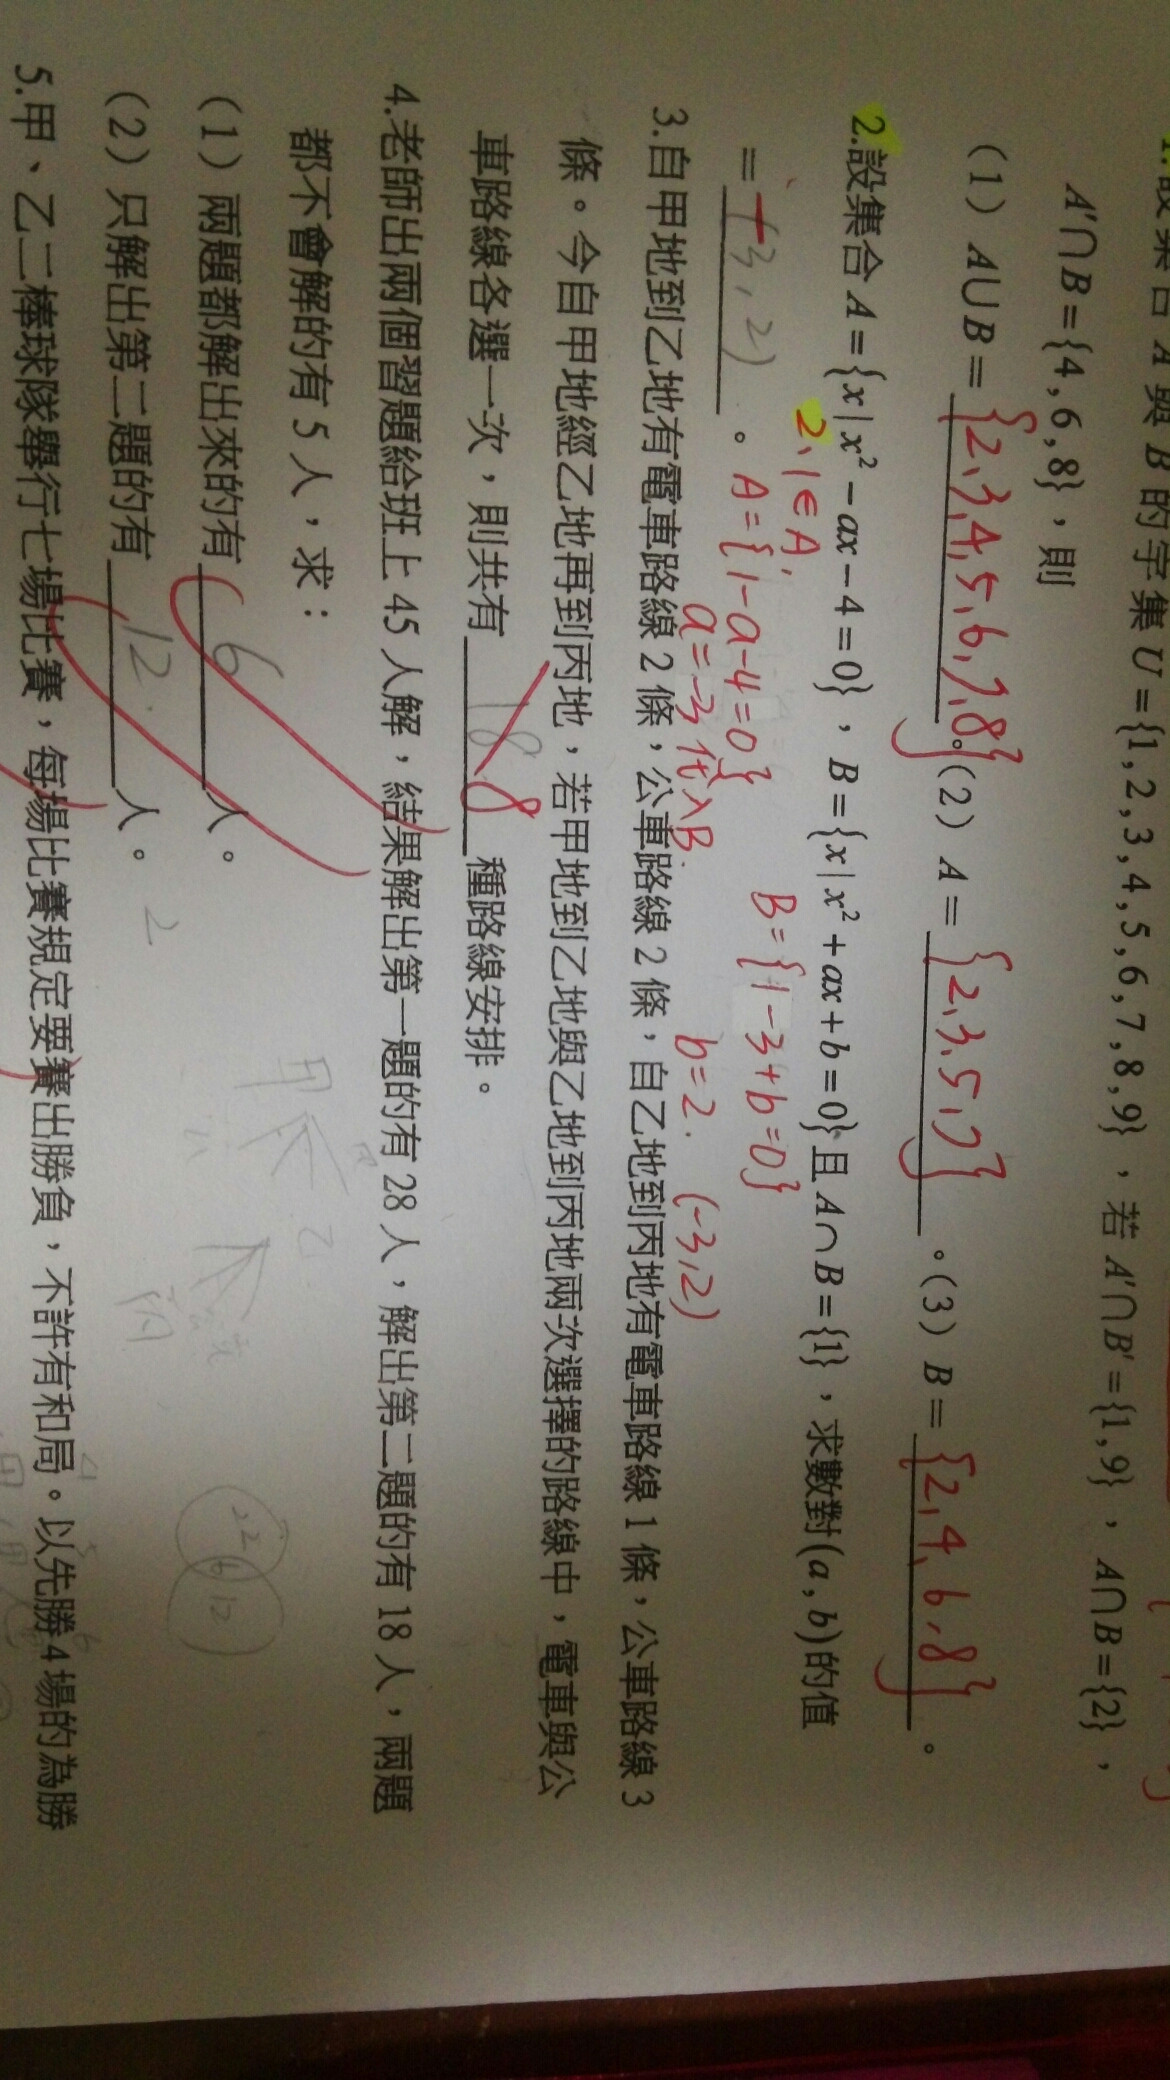 1.設集合 A 與 B 的字集 U={1,2,3,4,5,6,7,8,9},若 A'∩B'={1,9},A∩B={2},
A'∩B={4,6,8},則
(1) A∪B={2,3,4,5,6,7,8}。(2) A={2,3,5,7}。(3) B={2,4,6,8}。
2.設集合 A={x|x²-ax-4=0},B={x|x²+ax+b=0}且A∩B={1},求數對(a,b)的值
2,1∈A,
=(-3,2)。 A={1-a-4=0} B={1-3+b=0}
a=-3 代入B. b=2. (-3,2)
3.自甲地到乙地有電車路線 2 條,公車路線 2 條,自乙地到丙地有電車路線 1 條,公車路線 3
條。今自甲地經乙地再到丙地,若甲地到乙地與乙地到丙地兩次選擇的路線中,電車與公
車路線各選一次,則共有 18 8 種路線安排。
4.老師出兩個習題給班上 45 人解,結果解出第一題的有 28 人,解出第二題的有 18 人,兩題
都不會解的有 5 人,求:
(1)兩題都解出來的有 6 人。
(2)只解出第二題的有 12 人。 2
甲 乙 丙
22 6 12
5.甲、乙二棒球隊舉行七場比賽,每場比賽規定要賽出勝負,不許有和局。以先勝4場的為勝